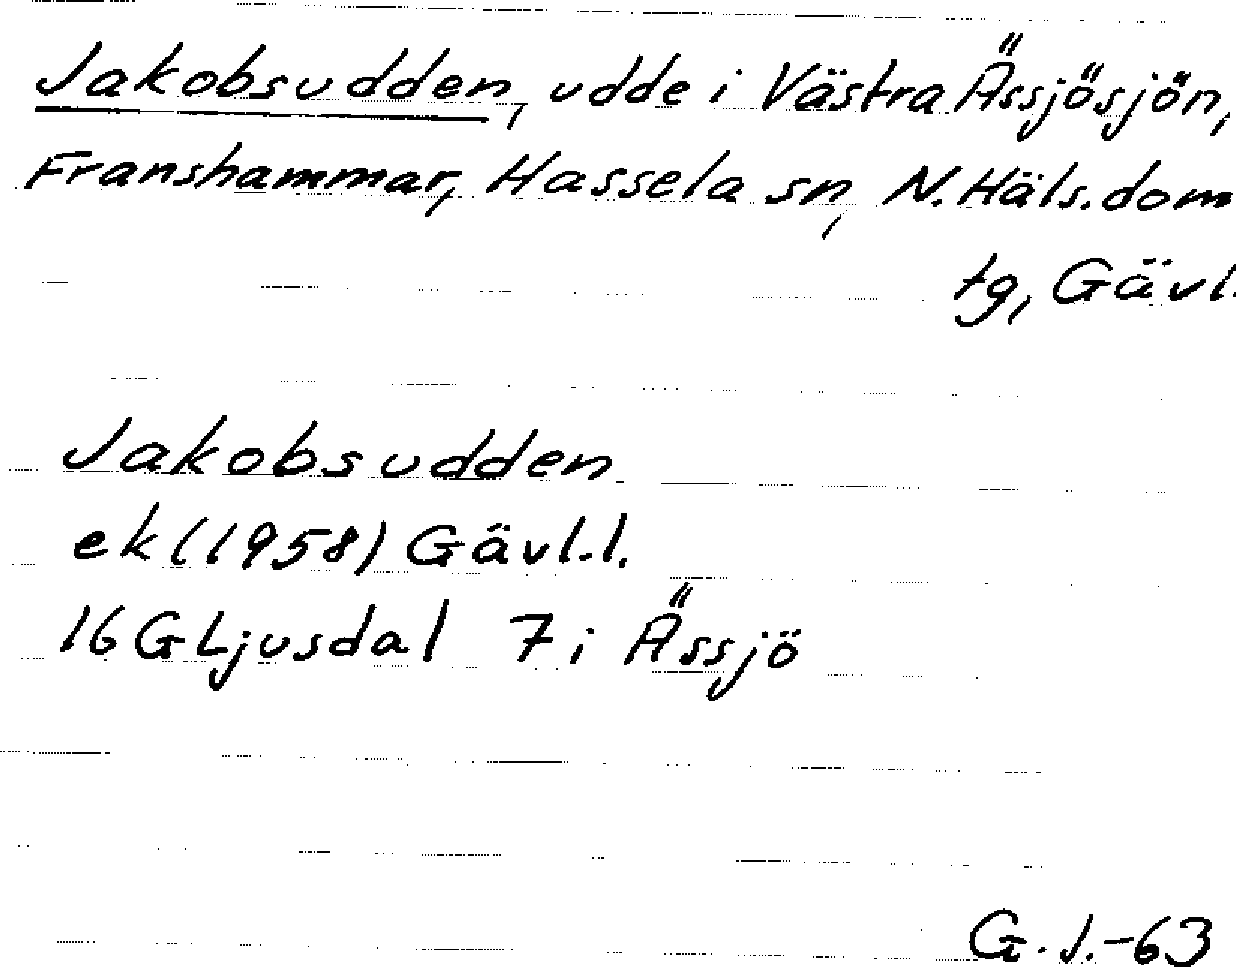 Jakobsudden, udde i Västra Ässjösjön,
Franshammar, Hassela sn, N. Häls. dom
tg, Gävl.
Jakobsudden
ek (1958) Gävl. l.
16 G Ljusdal 7 i Ässjö
G. J. -63